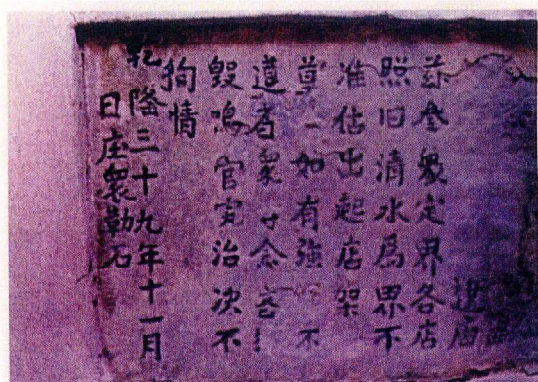 茲仝衆定界各店
照旧清水為界不
准估出起店架
如有強不
遵者衆
毀鳴官究治决不
狥情
乾隆三十九年十一月
日庄衆勒石